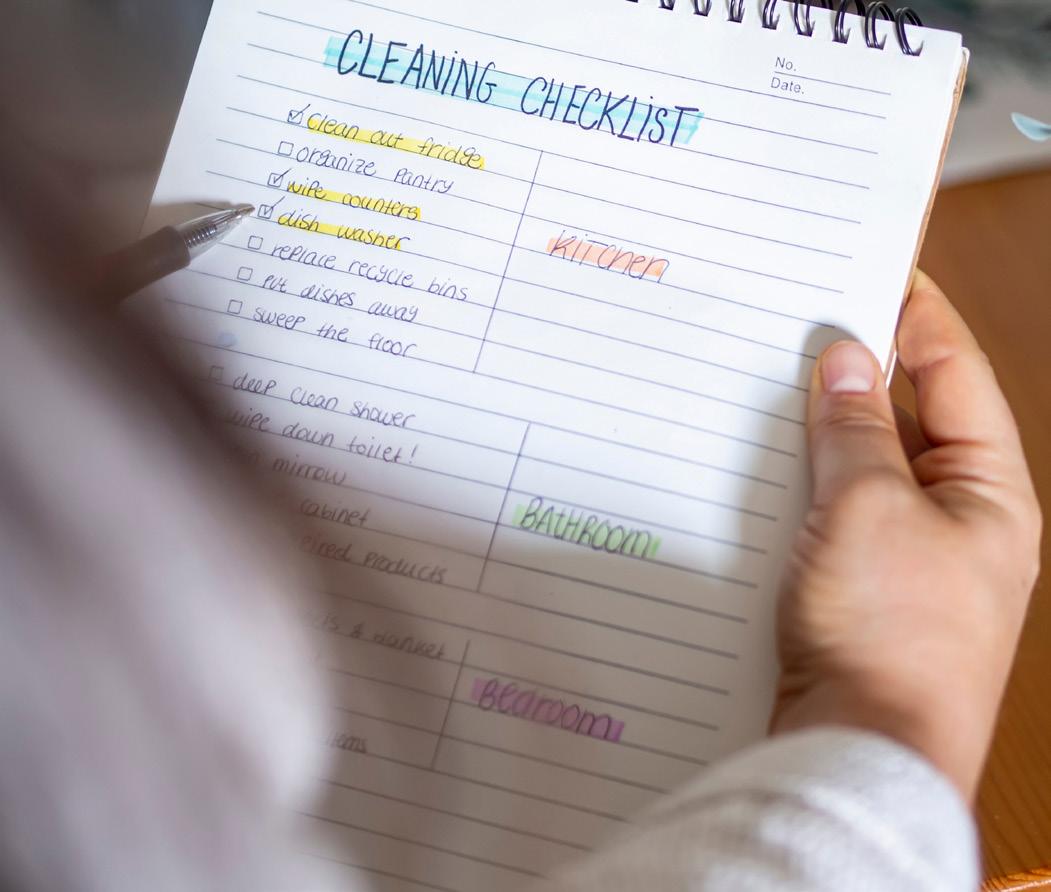 CLEANING CHECKLIST
No.
Date.
clean out fridge
organize pantry
wipe counters
dish washer
replace recycle bins
put dishes away
sweep the floor
KITCHEN
deep clean shower
wipe down toilet!
mirrow
cabinet
products
BATHROOM
& blanket
Bedroom
items